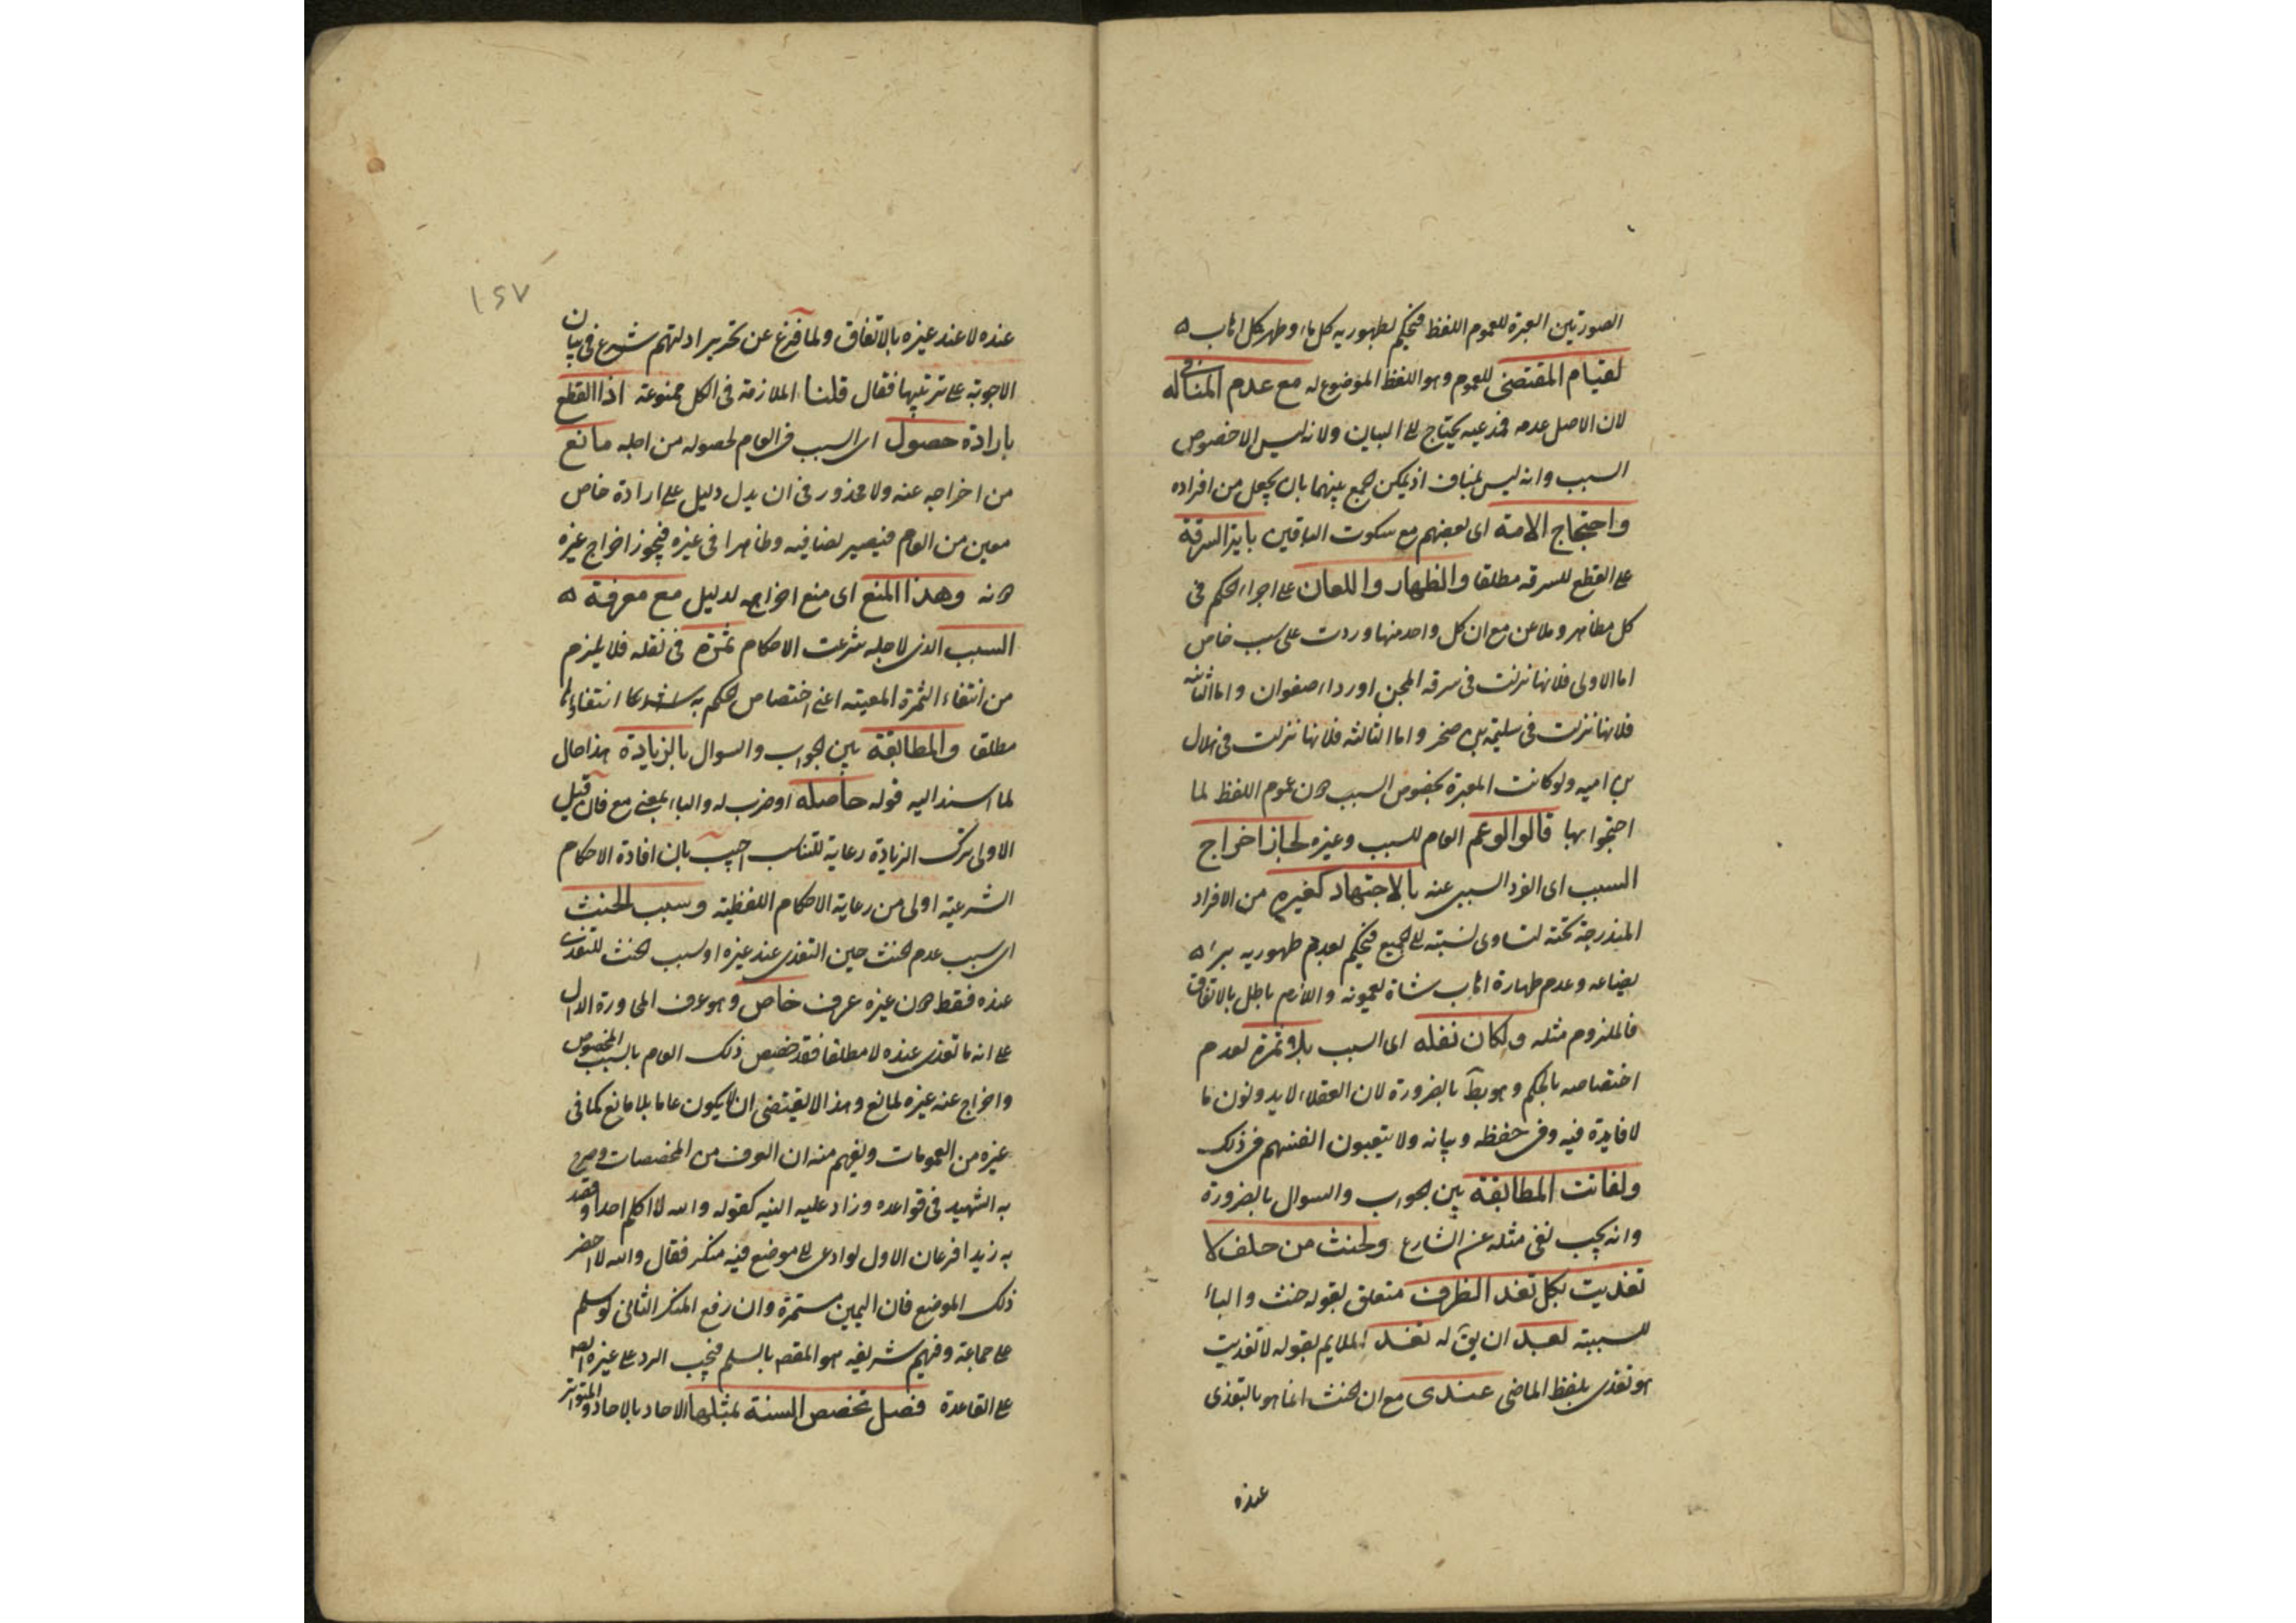 الصورتين العبرة لعموم اللفظ فيحكم بطهورية كل ماء وطهر كل اهاب ه
لقيام المقتضى للعموم وهو اللفظ الموضوع له مع عدم المنافى له
لان الاصل عدمه فمدعيه يحتاج الى البيان ولانه ليس الا خصوص
السبب وانه ليس بمناف اذ يمكن الجمع بينهما بان يجعل من افراده
واحتجاج الامة اى بعضهم مع سكوت الباقين باية السرقة
على القطع للسرقه مطلقا والظهار واللعان على اجراء الحكم فى
كل مظاهر وملاعن مع ان كل واحد منها وردت على سبب خاص
اما الاولى فلانها نزلت فى سرقه المجن او رداء صفوان واما الثانيه
فلانها نزلت فى سليمة بن صخر واما الثالثه فلانها نزلت فى هلال
بن اميه ولو كانت العبرة بخصوص السبب دون عموم اللفظ لما
احتجوا بها قالوا لو عم العام للسبب وغيره لجاز اخراج
السبب اى الفرد السببى عنه بالاجتهاد كغيره من الافراد
المندرجة تحته لتساوى نسبته الى الجميع فيحكم بعدم طهوريه بئر ه
بضاعه وعدم طهارة اهاب شاة لميمونه واللازم باطل بالاتفاق
فالملزوم مثله ولكان نقله اى السبب بلا ثمرة لعدم
اختصاصه بالحكم وهو بط بالضرورة لان العقلاء لا يدونون ما
لا فايدة فيه وفى حفظه وبيانه ولا يتعبون انفسهم فى ذلك
ولفاتت المطابقة بين الجواب والسوال بالضرورة
وانه يجب نفى مثله عن الشارع ولحنث من حلف لا
تغديت بكل تغد الظرف متعلق بقوله حنث والباء
للسببيه بعد ان يق له تغد الملايم بقوله لا تغديت
هو تغدى بلفظ الماضى عندى مع ان الحنث انما هو بالتغدى
عنده
١٤٧
عنده لا عند غيره بالاتفاق ولما فرغ عن تحرير ادلتهم شرع فى بيان
الاجوبة على ترتيبها فقال قلنا الملازمة فى الكل ممنوعة اذ القطع
بارادة حصول اى السبب فى العام لحصوله من اجله مانع
من اخراجه عنه ولا محذور فى ان يدل دليل على ارادة خاص
معين من العام فيصير نصا فيه وظاهرا فى غيره فيجوز اخراج غيره
دونه وهذا المنع اى منع اخراجه لدليل مع معرفة ه
السبب الذى لاجله شرعت الاحكام ثمرة فى نقله فلا يلزم
من انتفاء الثمرة المعينه اعنى اختصاص الحكم به انتفاءها
مطلقا والمطابقة بين الجواب والسوال بالزيادة هذا حال
لما اسند اليه قوله حاصله او ضرب له والباء بمعنى مع فان قيل
الاولى ترك الزيادة رعاية للتناسب اجيب بان افادة الاحكام
الشرعيه اولى من رعاية الاحكام اللفظيه وسبب الحنث
اى سبب عدم الحنث حين التغدى عند غيره او سبب الحنث للتغدى
عنده فقط دون غيره عرف خاص وهو عرف المحاورة الدال
على انه ما تغدى عنده لا مطلقا فقد خصص ذلك العام بالسبب المخصوص
واخراج عنه غيره لمانع وهذا لا يقتضى ان لا يكون عاما بلا مانع كما فى
غيره من العمومات ويفهم منه ان العرف من المخصصات وصرح
به الشهيد فى قواعده وزاد عليه النيه كقوله والله لا اكلم احدا وقصد
به زيدا فرعان الاول لو ادعى الى موضع فيه منكر فقال والله لا احضر
ذلك الموضع فان اليمين مستمرة وان رفع المنكر الثانى لو سلم
على جماعة وفيهم شريف هو المقصد بالسلم فيجب الرد على غيره
على القاعدة فصل تخصص السنة بمثلها الاحاد بالاحاد والمتواتر